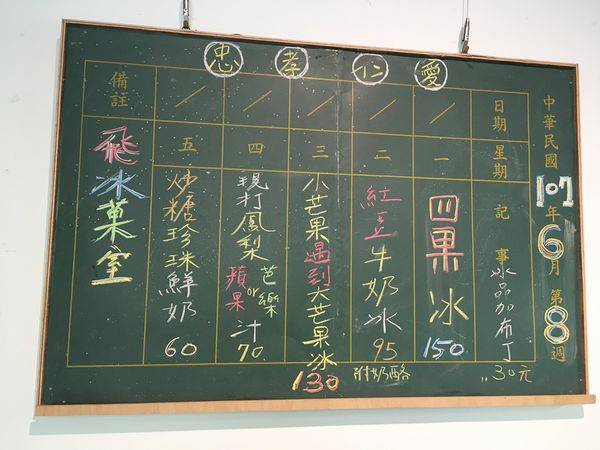 忠 孝 仁 愛
中華民國107年6月第8週
日期 星期 記事
冰品加布丁..30元
一 四果冰150
二 紅豆牛奶冰95
附奶酪
三 小芒果遇到大芒果冰130
四 現打鳳梨蘋果or芭樂汁70
五 炒糖珍珠鮮奶60
備註
飛冰菓室